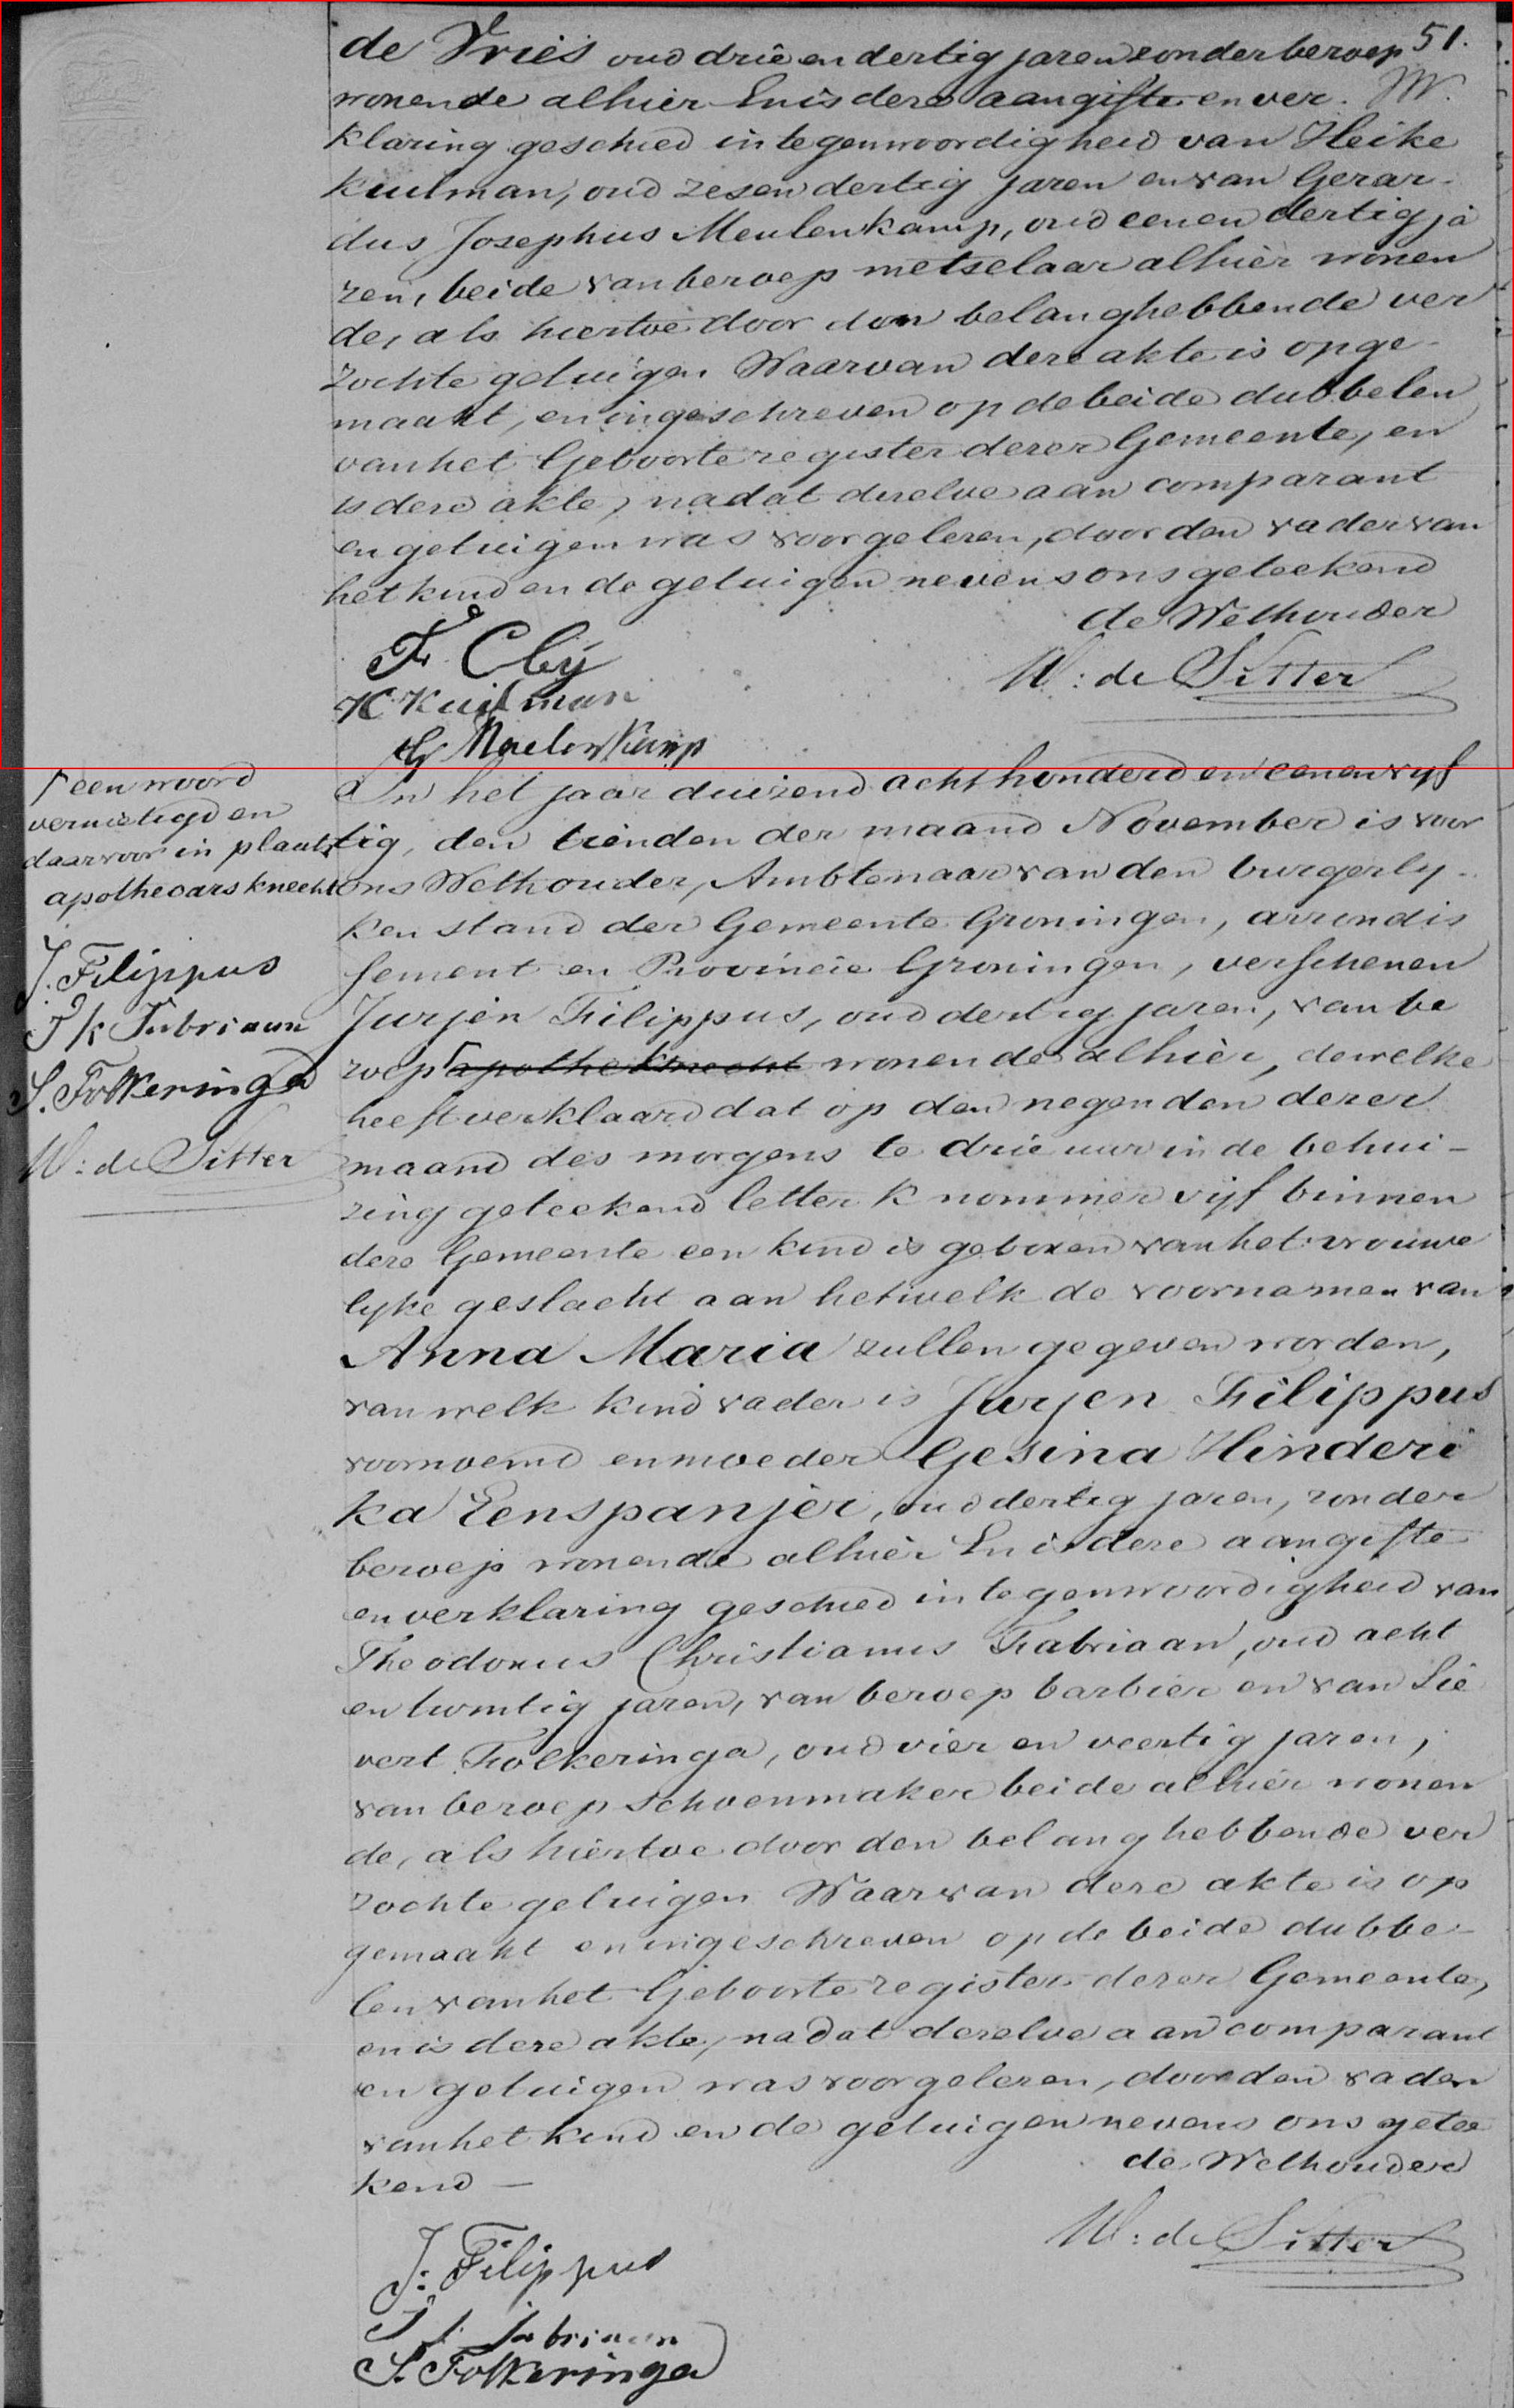 51.
de Vries oud drie en dertig jaren zonder beroep
W.
wonende alhier En is deze aangifte en ver.
klaring geschied in tegenwoordigheid van Heike
Kuilman, oud zes en dertig jaren en van Gerar-
dus Josephus Meulenkamp, oud een en dertig ja
ren, beide van beroep metselaar alhier wonen
de, als hiertoe door den belanghebbende ver
zochte getuigen Waarvan deze akte is opge-
maakt, en ingeschreven op de beide dubbelen
van het Geboorteregister dezer Gemeente, en
is deze akte, nadat dezelve aan comparant
en getuigen was voorgelezen, door den vader van
het kind en de getuigen nevens ons geteekend
de Wethouder
F. Cley
W: de Sitter
H Kuilman
G Meulenkamp
een woord
vernietigd en
daarvoor in plaats
apothecars knecht
J. Filippus
Fabriaan
S. Folkeringa
W: de Sitter
In het jaar duizend acht honderd en een en vyf
tig, den tienden der maand November is voor
ons Wethouder, Ambtenaar van den burgerly-
ken stand der Gemeente Groningen, arrondis
sement en Provincie Groningen, verschenen
Jurjen Filippus, oud dertig jaren, van be
roep apothekknecht wonende alhier, dewelke
heeft verklaard dat op den negenden dezer
maand des morgens te drie uur in de behui-
zing geteekend letter K nommer vijf binnen
deze Gemeente een kind is geboren van het vrouwe
lyke geslacht aan hetwelk de voornamen van
Anna Maria zullen gegeven worden,
van welk kind vader is Jurjen Filippus
voornoemd en moeder Gesina Hinderi
ka Eenspanjer, oud dertig jaren, zonder
beroep wonende alhier En is deze aangifte
en verklaring geschied in tegenwoordigheid van
Theodorus Christianus Fabriaan, oud acht
en twintig jaren, van beroep barbier en van Sie
vert Folkeringa, oud vier en veertig jaren,
van beroep schoenmaker beide alhier wonen
de, als hiertoe door den belanghebbende ver
zochte getuigen Waarvan deze akte is op
gemaakt en ingeschreven op de beide dubbe-
len van het Geboorteregister dezer Gemeente,
en is deze akte, nadat dezelve aan comparant
en getuigen was voorgelezen, door den vader
van het kind en de getuigen nevens ons getee
kend —
de Wethouder
W: de Sitter
J: Filippus
Fabriaan
S. Folkeringa